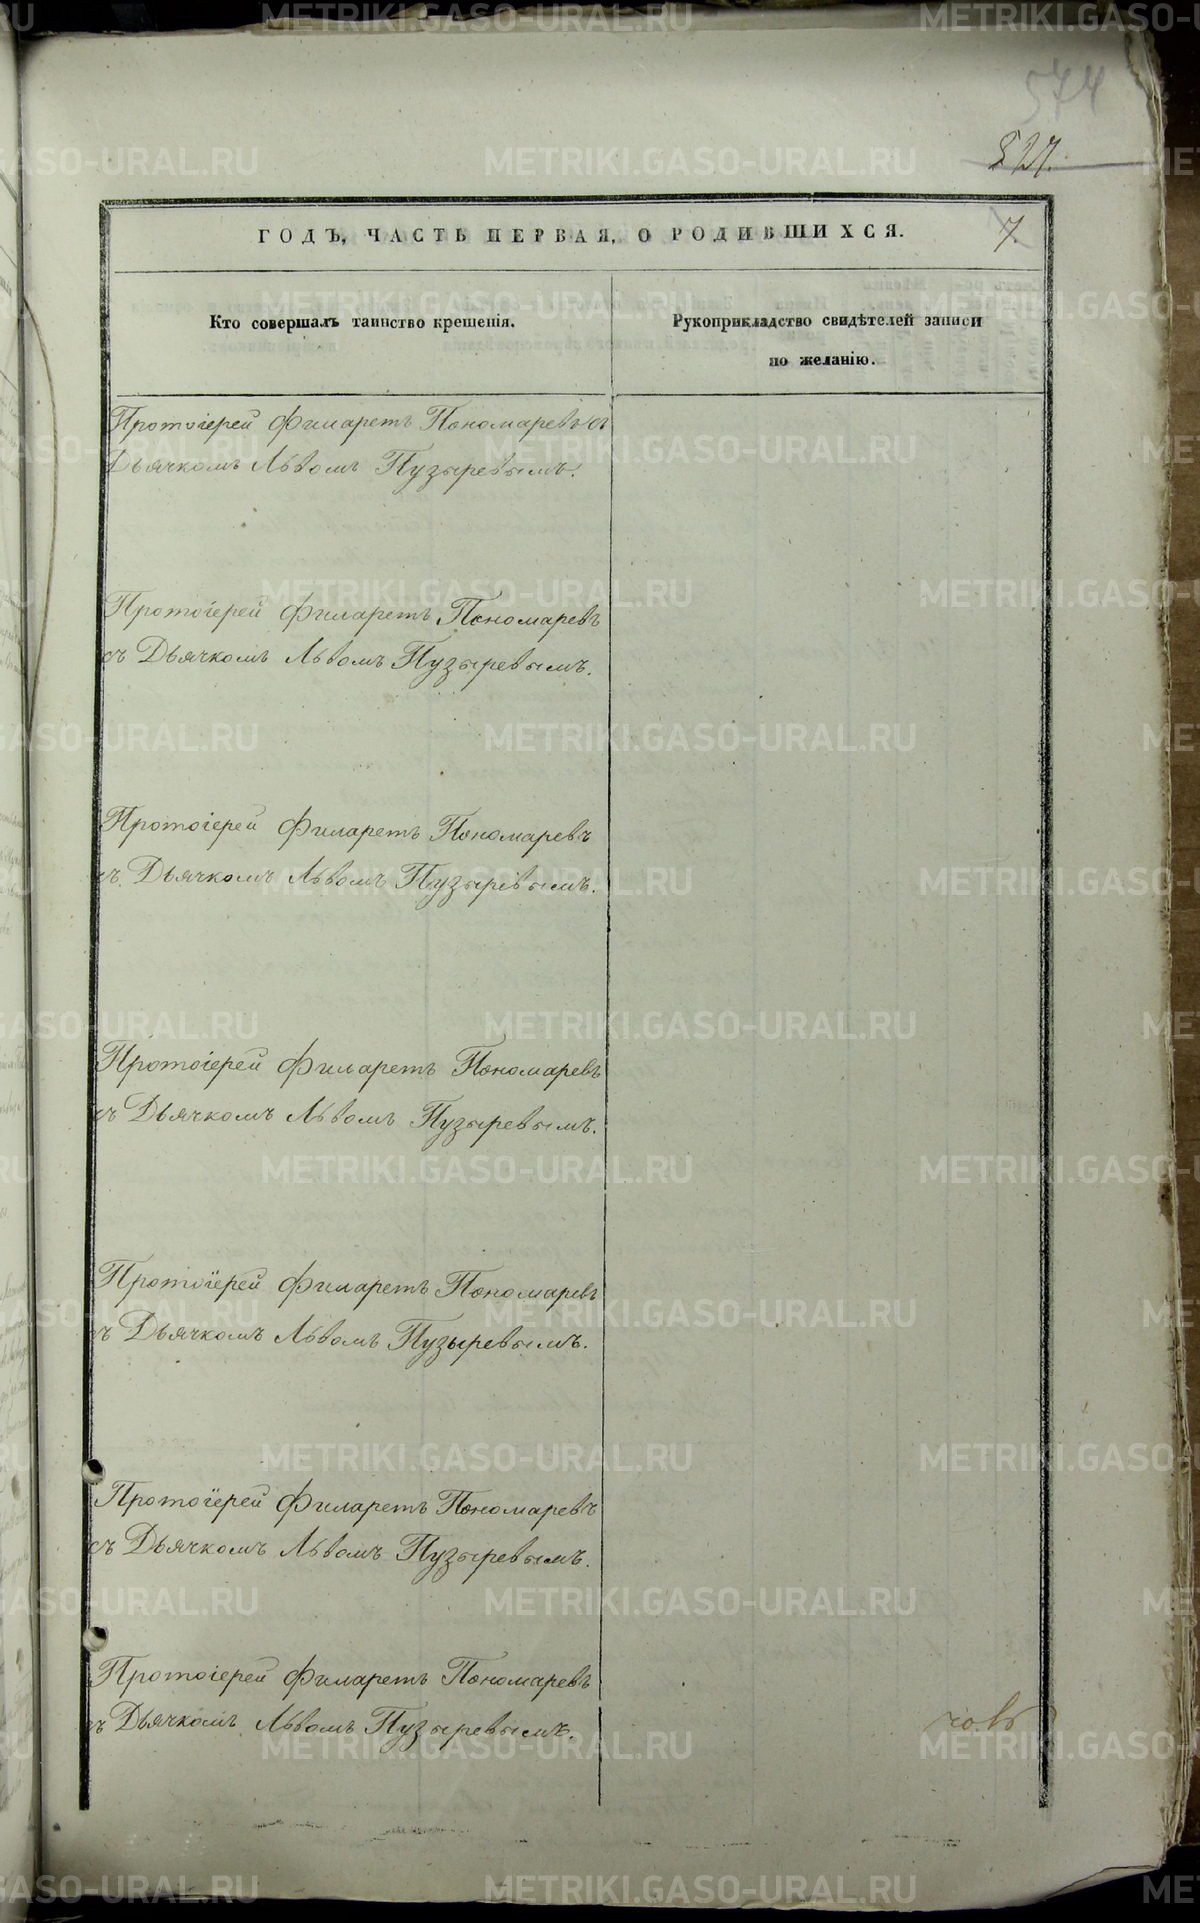 574
527.
ГОДЪ, ЧАСТЬ ПЕРВАЯ, О РОДИВШИХСЯ. 7.
Кто совершалъ таинство крещенія.
Рукоприкладство свидѣтелей записи
по желанію.
Протоіерей Филаретъ Пономаревъ съ
Дьячкомъ Львомъ Пузыревымъ.
Протоіерей Филаретъ Пономаревъ
съ Дьячкомъ Львомъ Пузыревымъ.
Протоіерей Филаретъ Пономаревъ
съ Дьячкомъ Львомъ Пузыревымъ.
Протоіерей Филаретъ Пономаревъ
съ Дьячкомъ Львомъ Пузыревымъ.
Протоіерей Филаретъ Пономаревъ
съ Дьячкомъ Львомъ Пузыревымъ.
Протоіерей Филаретъ Пономаревъ
съ Дьячкомъ Львомъ Пузыревымъ.
Протоіерей Филаретъ Пономаревъ
съ Дьячкомъ Львомъ Пузыревымъ.
METRIKI.GASO-URAL.RU